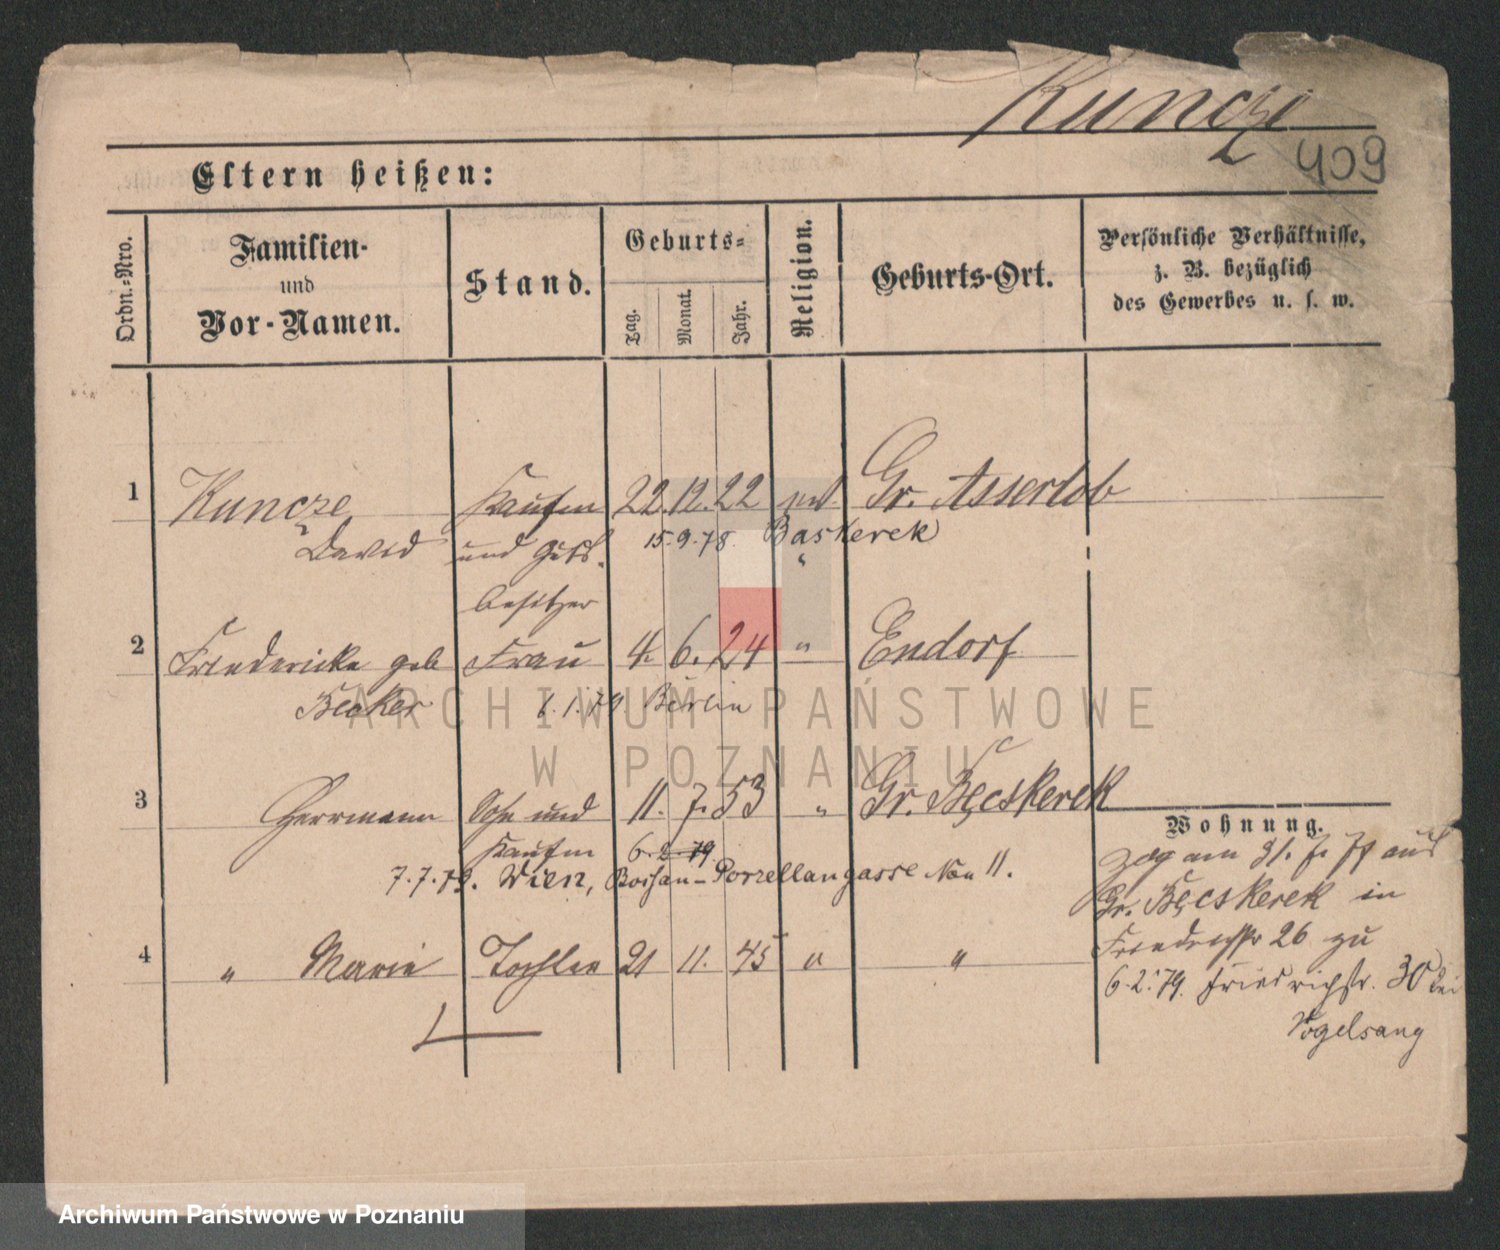 Kuncze
409
Eltern heißen:
Ordn.-Nro.
Familien-
und
Vor-Namen.
Stand.
Geburts-
Tag.
Monat.
Jahr.
Religion.
Geburts-Ort.
Persönliche Verhältnisse,
z. B. bezüglich
des Gewerbes u. s. w.
1 Kuncze Kaufm 22. 12. 22 Gr. Asserlob
David und Guts- 15.9.78. Baskerek "
besitzer
2 Friedericke geb Frau 4. 6. 24 " Endorf
Becker 6.1.79 Berlin
3 Herrmann Sohn und 11. 7. 53 " Gr. Becskerek
Kaufm 6.2.79
7.7.79. Wien, Porzellangasse No 11.
4 " Marie Tochter 21 11. 45 " "
Wohnung.
zog am 31. 77 aus
Gr. Becskerek in
Friedrichstr 26 zu
6.2.79. Friedrichstr. 30 bei
Vogelsang
ARCHIWUM PAŃSTWOWE
W POZNANIU
Archiwum Państwowe w Poznaniu